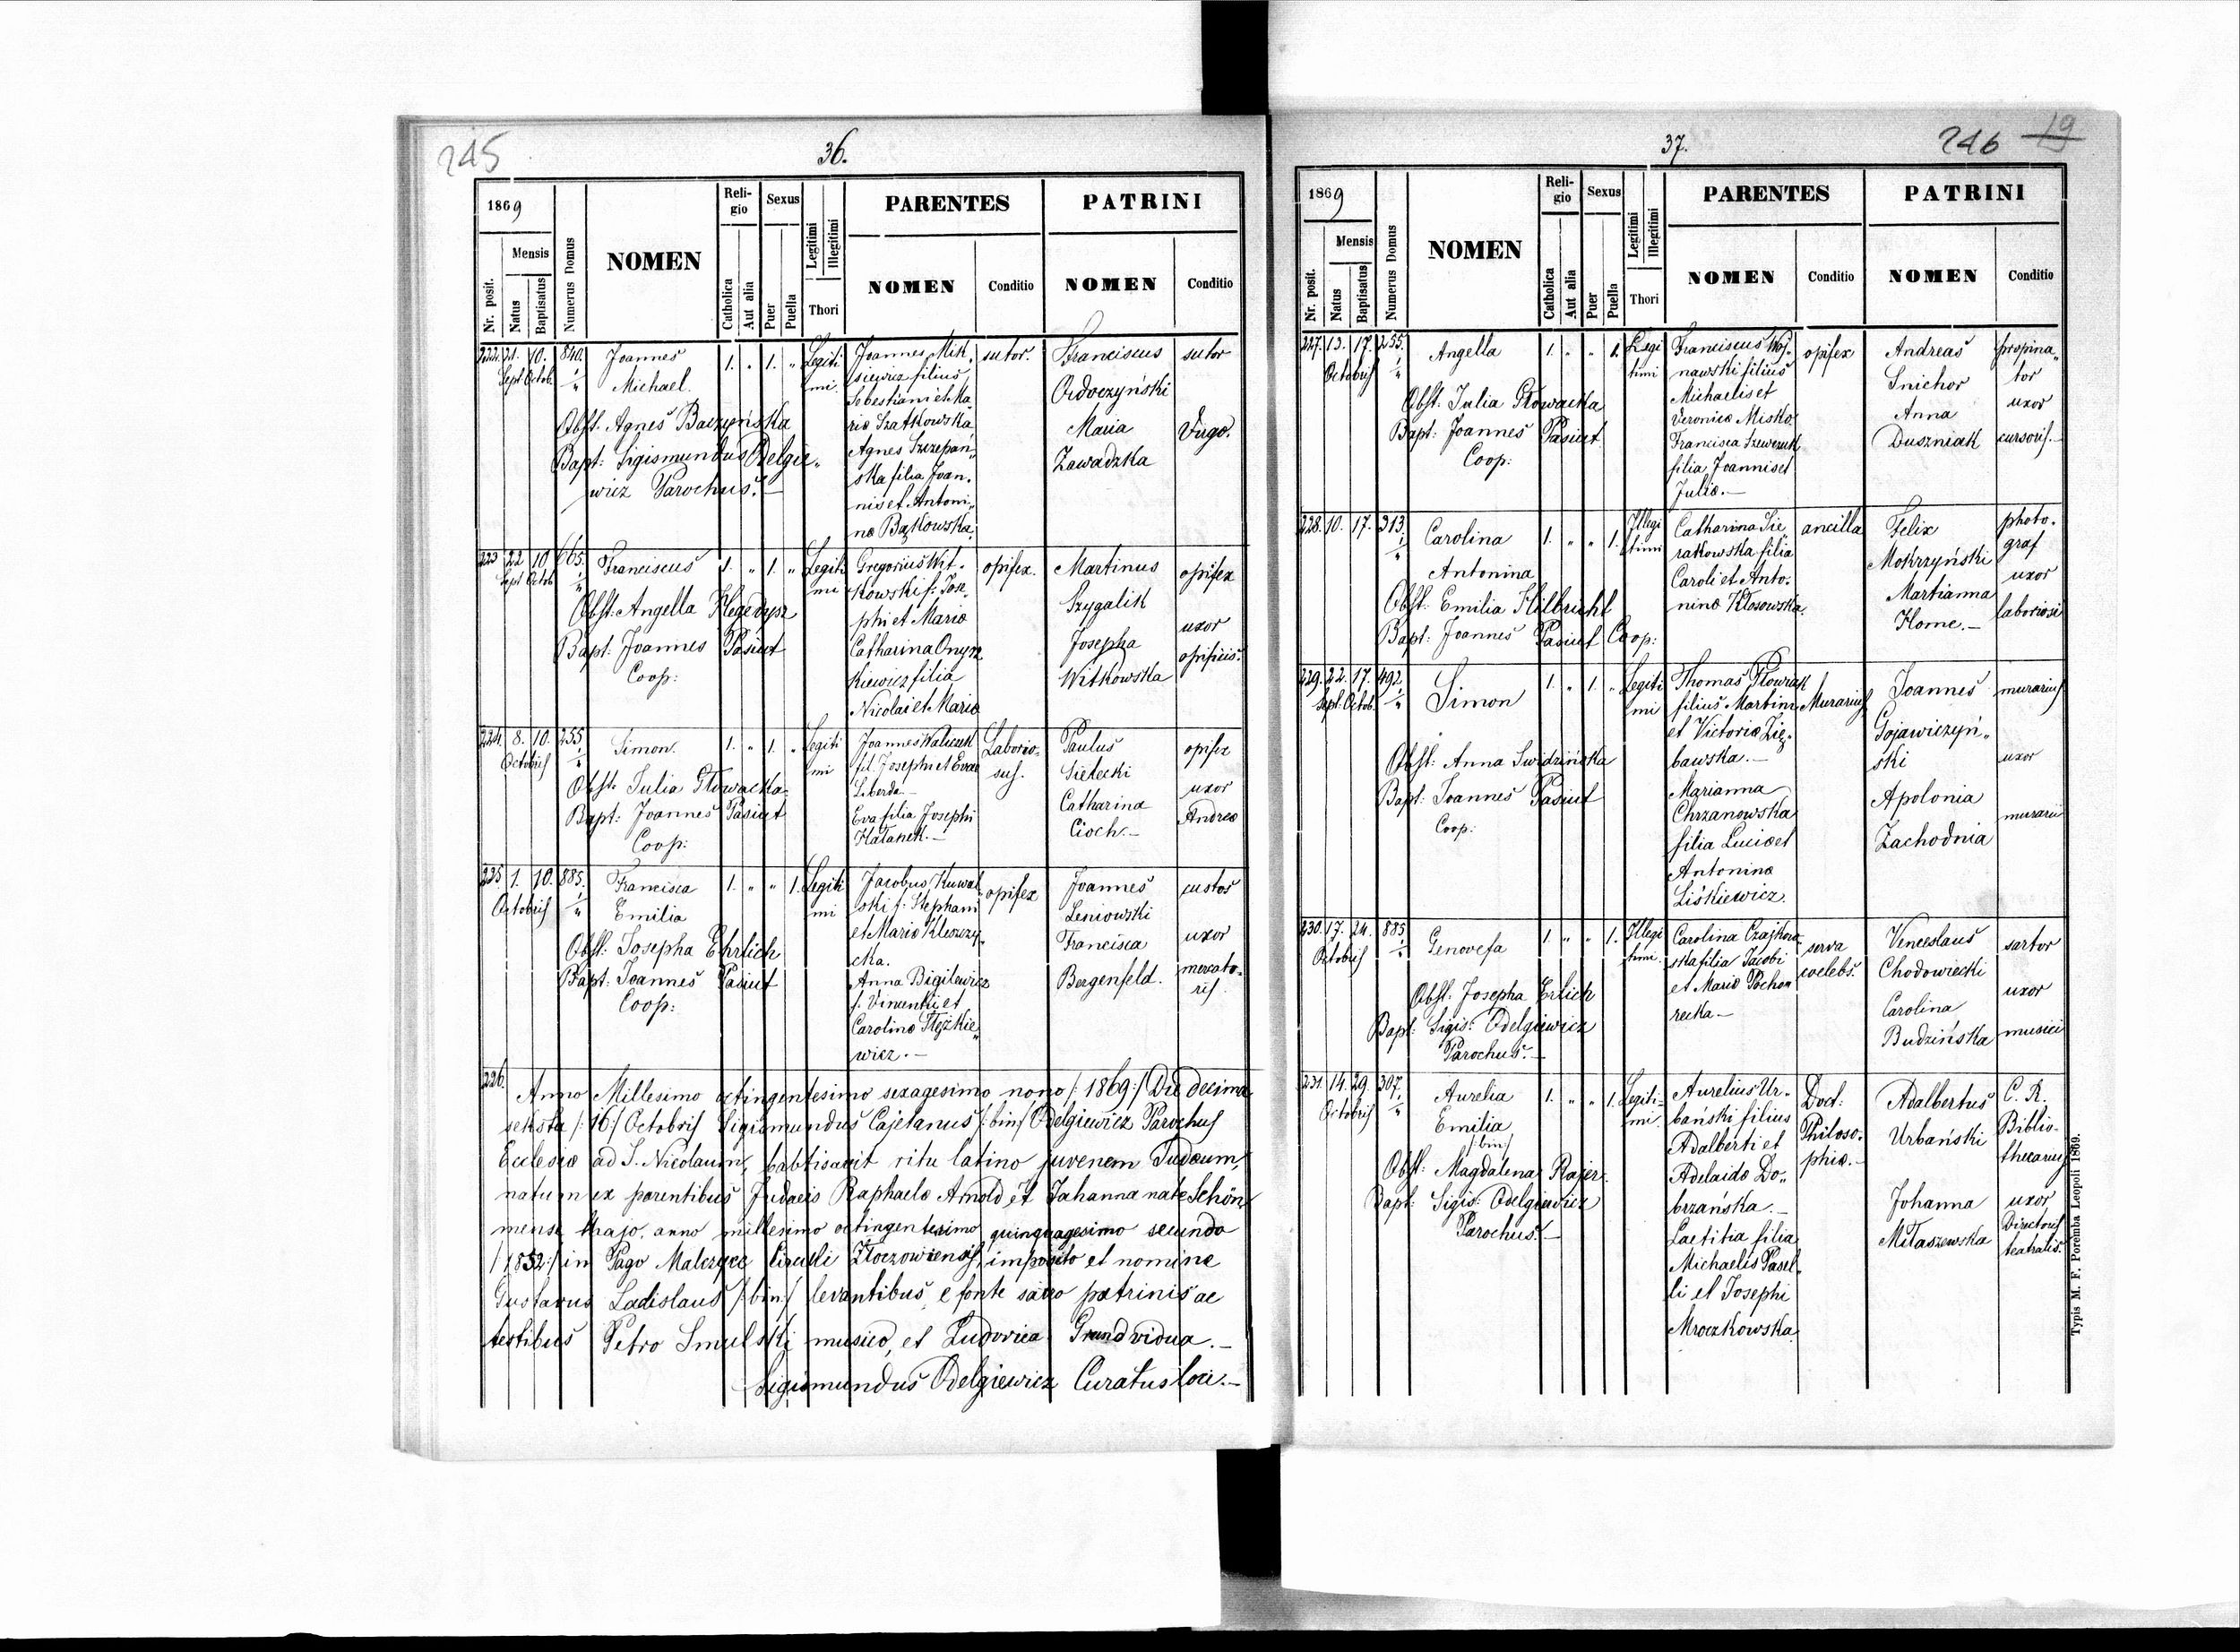 245
36.
1869
Mensis
Nr. posit.
Natus
Baptisatus
Numerus Domus
NOMEN
Reli-
gio
Catholica
Aut alia
Sexus
Puer
Puella
Legitimi
Illegitimi
Thori
PARENTES
NOMEN
Conditio
PATRINI
NOMEN
Conditio
222. 21. 10. 840.
Sept. Octob. 1/4
Joannes
Michael.
1. " 1. "
Legiti
mi
Obst. Agnes Baczyńska
Bapt: Sigismundus Odelgie„
wicz Parochus.—
Joannes Mik„
siewicz filius
Sebestiani et Ma„
riæ Szatkowska
Agnes Szczepań„
ska filia Joan„
nis et Antoni„
næ Bątkowska.
sutor.
Franciscus
Ordoczyński
Maria
Zawadzka
sutor
Virgo.
223 22 10 665.
Sept Octob 1/4
Franciscus
1. " 1. "
Legiti
mi
Obst: Angella Hegedysz
Bapt: Joannes Pasiut
Coop:
Gregorius Wit„
kowski f: Jose„
phi et Mariæ
Catharina Onysz
kiewicz filia
Nicolai et Mariæ
opifex.
Martinus
Szygalik
Josepha
Witkowska
opifex
uxor
opificis.
224. 8. 10. 255.
Octobris 1/4
Simon.
1. " 1. "
Legiti
mi
Obst. Julia Głowacka
Bapt: Joannes Pasiut
Coop:
Joannes Waliczek
fil Josephi et Evae
Liberda.—
Eva filia Josephi
Hałanek.—
Laborio„
sus.
Paulus
Sielecki
Catharina
Cioch.—
opifex
uxor
Andreæ
225 1. 10. 885.
Octobris 1/4
Francisca
Emilia
1. " " 1.
Legiti
mi
Obst: Josepha Ehrlich
Bapt: Joannes Pasiut
Coop:
Jacobus Kuwal
ski f: Stephani
et Mariæ Kleszczy„
cka.
Anna Bigilewicz
f: Vincentii et
Carolinæ Tłęzkie„
wicz.—
opifex
Joannes
Leniowski
Francisca
Bergenfeld.
custos
uxor
mercato„
ris.
226.
Anno Millesimo octingentesimo sexagesimo nono /:1869:/ Die decima
seksta /:16:/ Octobris Sigismundus Cajetanus /:bin:/ Odelgiewicz Parochus
Ecclesiæ ad S. Nicolaum, babtisavit ritu latino juvenem Judæum,
natum ex parentibus Judaeis Raphaele Arnold et Jahanna nate Schön,
mense Majo, anno millesimo octingentesimo quinquagesimo secundo
/:1852:/ in Pago Malczyce Circuli Złoczowiensis, imposito et nomine
Gustavus Ladislaus /:bin:/ levantibus e fonte sacro patrinis ac
testibus Petro Smulski musico, et Ludovica Grund vidua.—
Sigismundus Odelgiewicz Curatus loci.—
37.
246 19
1869
Mensis
Nr. posit.
Natus
Baptisatus
Numerus Domus
NOMEN
Reli-
gio
Catholica
Aut alia
Sexus
Puer
Puella
Legitimi
Illegitimi
Thori
PARENTES
NOMEN
Conditio
PATRINI
NOMEN
Conditio
227. 13. 17. 255.
Octobris 1/4
Angella
1. " " 1.
Legi
timi
Obst. Julia Głowacka
Bapt: Joannes Pasiut
Coop:
Franciscus Woj„
nawski filius
Michaelis et
Veronicæ Misko
Francisca Szewczuk
filia Joannis et
Juliæ.—
opifex
Andreas
Snichor
Anna
Duszniak
propina„
tor
uxor
cursoris.—
228. 10. 17. 313.
1/4
Carolina
Antonina
1. " " 1.
Illegi
timi
Obst. Emilia Hilbricht
Bapt: Joannes Pasiut Coop:
Catharina Sie„
rakowska filia
Caroli et Anto„
ninæ Kłosowska.
ancilla
Felix
Mokrzyński
Martianna
Horne.—
photo„
graf
uxor
laboriosi
229. 22. 17. 492.
Sept. Octob. 1/4
Simon
1. " 1. "
Legiti
mi
Obst: Anna Swidzińska
Bapt: Joannes Pasiut
Coop:
Thomas Płowiak
filius Martini
et Victoriæ Zię„
bawska.—
Marianna
Chrzanowska
filia Lucię et
Antoninæ
Liśkiewicz.
Murarius
Joannes
Gojawiczyń„
ski
Apolonia
Zachodnia
murarius
uxor
murarii
230. 17. 24. 885.
Octobris 1/4
Genovefa
1. " " 1.
Illegi
timi
Obst: Josepha Erlich
Bapt: Sigis: Odelgiewicz
Parochus.—
Carolina Czajkow„
ska filia Jacobi
et Mariæ Pochon
recka—
serva
coelebs.
Venceslaus
Chodowiecki
Carolina
Budzińska
sartor
uxor
musici
231. 14. 29. 307.
Octobris 1/4
Aurelia
Emilia
/:bin:/
1. " " 1.
Legiti„
mi
Obst. Magdalena Rajer.
Bapt: Sigis: Odelgiewicz
Parochus.—
Aurelius Ur„
bański filius
Adalberti et
Adelaidæ Do„
brzańska.—
Laetitia filia
Michaelis Pasel„
li et Josephi
Mroczkowska.
Doct:
Philoso„
phiæ.—
Adalbertus
Urbański
Johanna
Miłaszewska
C. R.
Biblio„
thecarius
uxor
Directoris
teatralis.
Typis M. F. Poremba Leopoli 1869.